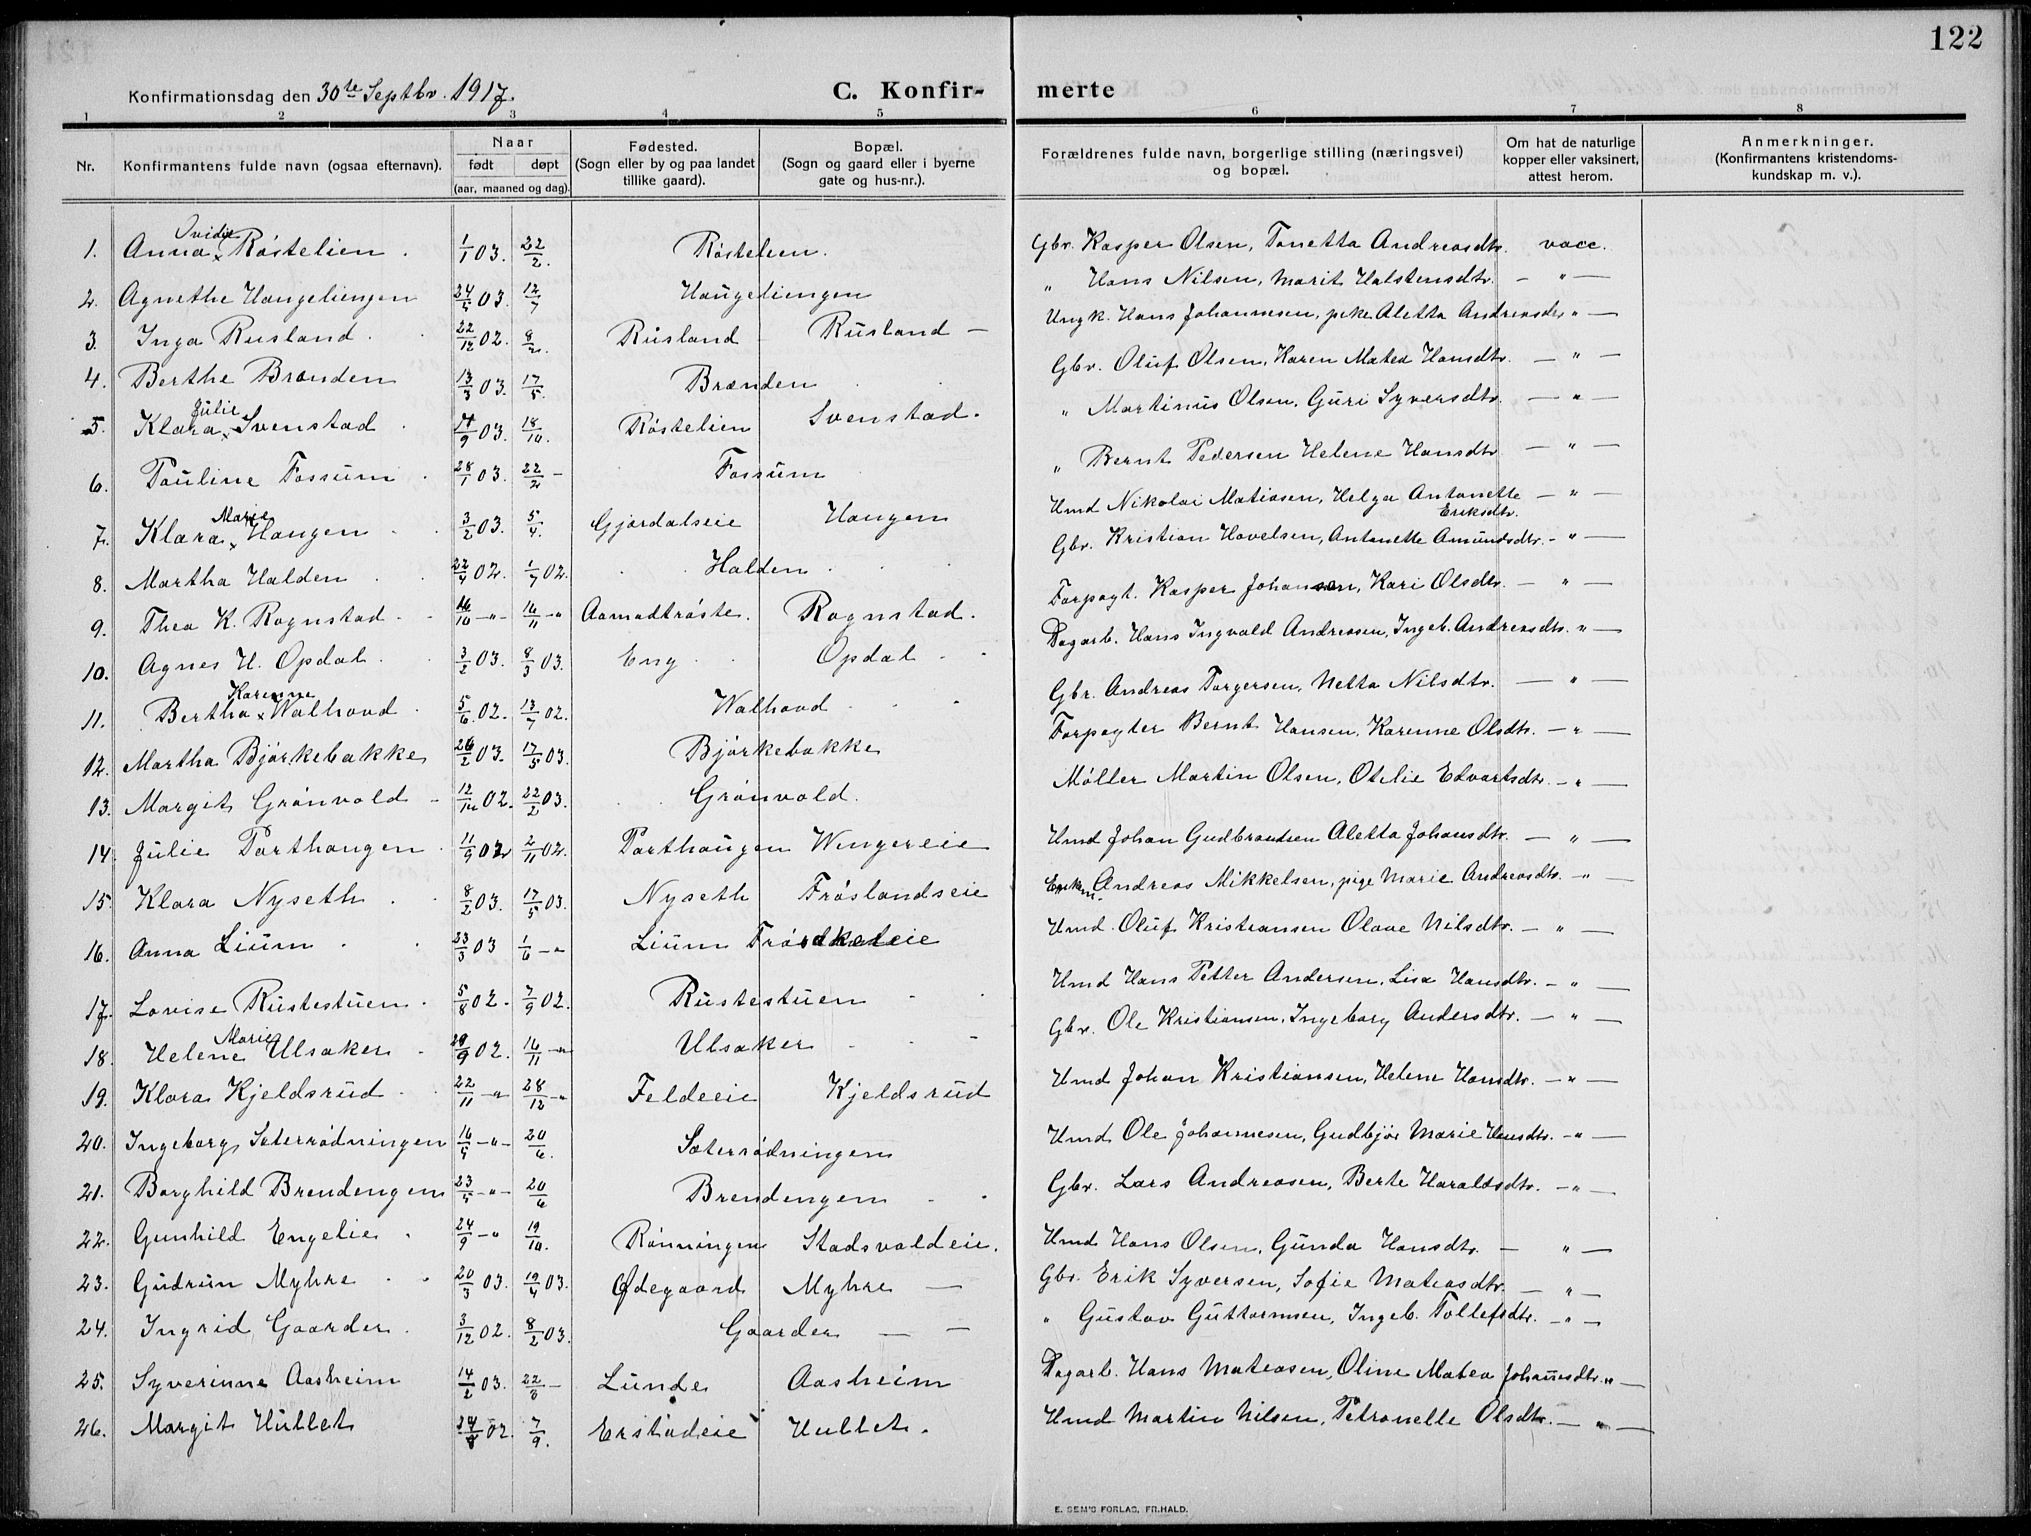 122
Konfirmationsdag den 30te Septbr. 1917.
C. Konfir- merte
1 2 3 4 5 6 7 8
Nr. Konfirmantens fulde navn (ogsaa efternavn). Naar født døpt (aar, maaned og dag). Fødested. (Sogn eller by og paa landet tillike gaard). Bopæl. (Sogn og gaard eller i byerne gate og hus-nr.). Forældrenes fulde navn, borgerlige stilling (næringsvei) og bopæl. Om hat de naturlige kopper eller vaksinert, attest herom. Anmerkninger. (Konfirmantens kristendoms- kundskap m. v.).
Ovidie
1. Anna x Røstelien. 1/1 03. 22/2. Røstelien. Gbr. Kasper Olsen, Tonetta Andreasdtr. vacc.
2. Agnethe Haugeliengen 24/5 03. 12/7 Haugeliengen " Hans Nilsen, Marit Halstensdtr. - " -
3. Inga Rusland. 22/12 02. 8/2. Rusland Rusland - Ungk. Hans Johannesen, pike Aletta Andreasdtr " -
4. Berthe Brænden 13/3 03. 17/5. Brænden Gbr. Oluf Olsen, Karen Matea Hansdtr. - " -
Julie
5. Klara x Svenstad 17/9 03. 18/10. Røstelien Svenstad. " Martinus Olsen, Guri Syversdtr. - " -
6. Pauline Fossum 28/1 03. 22/2 - Fossum " Bernt Pedersen Helene Hansdtr - " -
Marie
7. Klara x Haugen 3/2 03. 5/4. Gjørdalseie Haugen Hmd Nikolai Matiasen, Helga Antonette Eriksdtr. - " -
8. Martha Halden 22/4 02. 1/7 02. Halden Gbr. Kristian Hovelsen, Antonette Amundsdtr. - " -
9. Thea K. Rognstad 16/10 - " - 16/11 - " Aamodtrøste. Rognstad. Forpagt. Kasper Johansen, Kari Olsdtr. - " -
10. Agnes H. Opdal. 3/2 03. 8/3 03. Eng Opdal Dagarb. Hans Ingvald Andreasen, Ingeb. Andreasdtr. " -
Karenne
11. Bertha x Walhovd 5/6 02. 13/7 02. Walhovd Gbr. Andreas Torgersen, Netta Nilsdtr. - " -
12. Martha Bjørkebakke 26/2 03. 17/5 03. Bjørkebakke Forpagter Bernt Hansen, Karenne Olsdtr. - " -
13. Margit Grønvold 12/12 02. 22/2 03. Grønvold. Møller Martin Olsen, Otelie Edvartsdtr. - " -
14. Julie Parthaugen 11/9 02 2/11 02. Parthaugen Wengereie Hmd Johan Gudbrandsen Aletta Johansdtr. - " -
15. Klara Nyseth 8/2 03. 17/5 03. Nyseth Frøslandseie Enkem. Andreas Mikkelsen, pige Marie Andreasdtr. - " -
16. Anna Lium 23/3 03 1/6 - " Lium Hmd. Oluf Kristiansen Olave Nilsdtr. - " -
17. Lovise Rustestuen. 5/8 02. 7/9 02. Rustestuen Hmd Hans Petter Andersen, Lisa Hansdtr. - " -
Marie
18. Helene Ulsaker 29/9 02. 16/11 - " Ulsaker Gbr. Ole Kristiansen, Ingeborg Andersdtr. - " -
19. Klara Kjeldsrud 22/11 - " 28/12 - " Feldeeie Kjeldsrud Hmd Johan Kristiansen, Helene Hansdtr. - " -
20. Ingeborg Sæterrødningen 16/5 - " - 20/6. Sæterrødningen Hmd Ole Johannesen, Gudbjør Marie Hansdtr. - " -
21. Borghild Brendengen 23/5 - " - 20/6 Brendengen Gbr. Lars Andreasen, Berte Haraldsdtr. - " -
22. Gunhild Engelie 24/9 - " 19/10. Rønningen Stadsvoldeie. Hmd Hans Olsen, Gunda Hansdtr. - " -
23. Gudrun Myhre 20/3 03. 19/4 03. Ødegaard Myhre - Gbr. Erik Syversen, Sofie Mateasdtr. - " -
24. Ingrid Gaarder. 3/12 02. 8/2 03. Gaarder - - " Gustav Guttormsen, Ingeb. Tollefsdtr. - " -
25. Syverinne Aasheim 14/2 03. 22/3 - Lunde Aasheim Dagarb. Hans Mateasen, Oline Matea Johannesdtr. " -
26. Margit Hullet 02. 7/9. Erstadeie Hullet. Hmd Martin Nilsen, Petronelle Olsdtr. - " -
E. SEM'S FORLAG, FR.HALD.